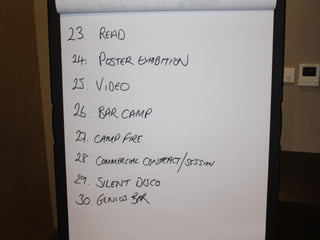 23 READ
24. POSTER EXHIBITION
25. VIDEO
26. BAR CAMP
27. CAMP FIRE
28. COMMERCIAL CONTRACT/SESSION
29. SILENT DISCO
30 GENIUS BAR